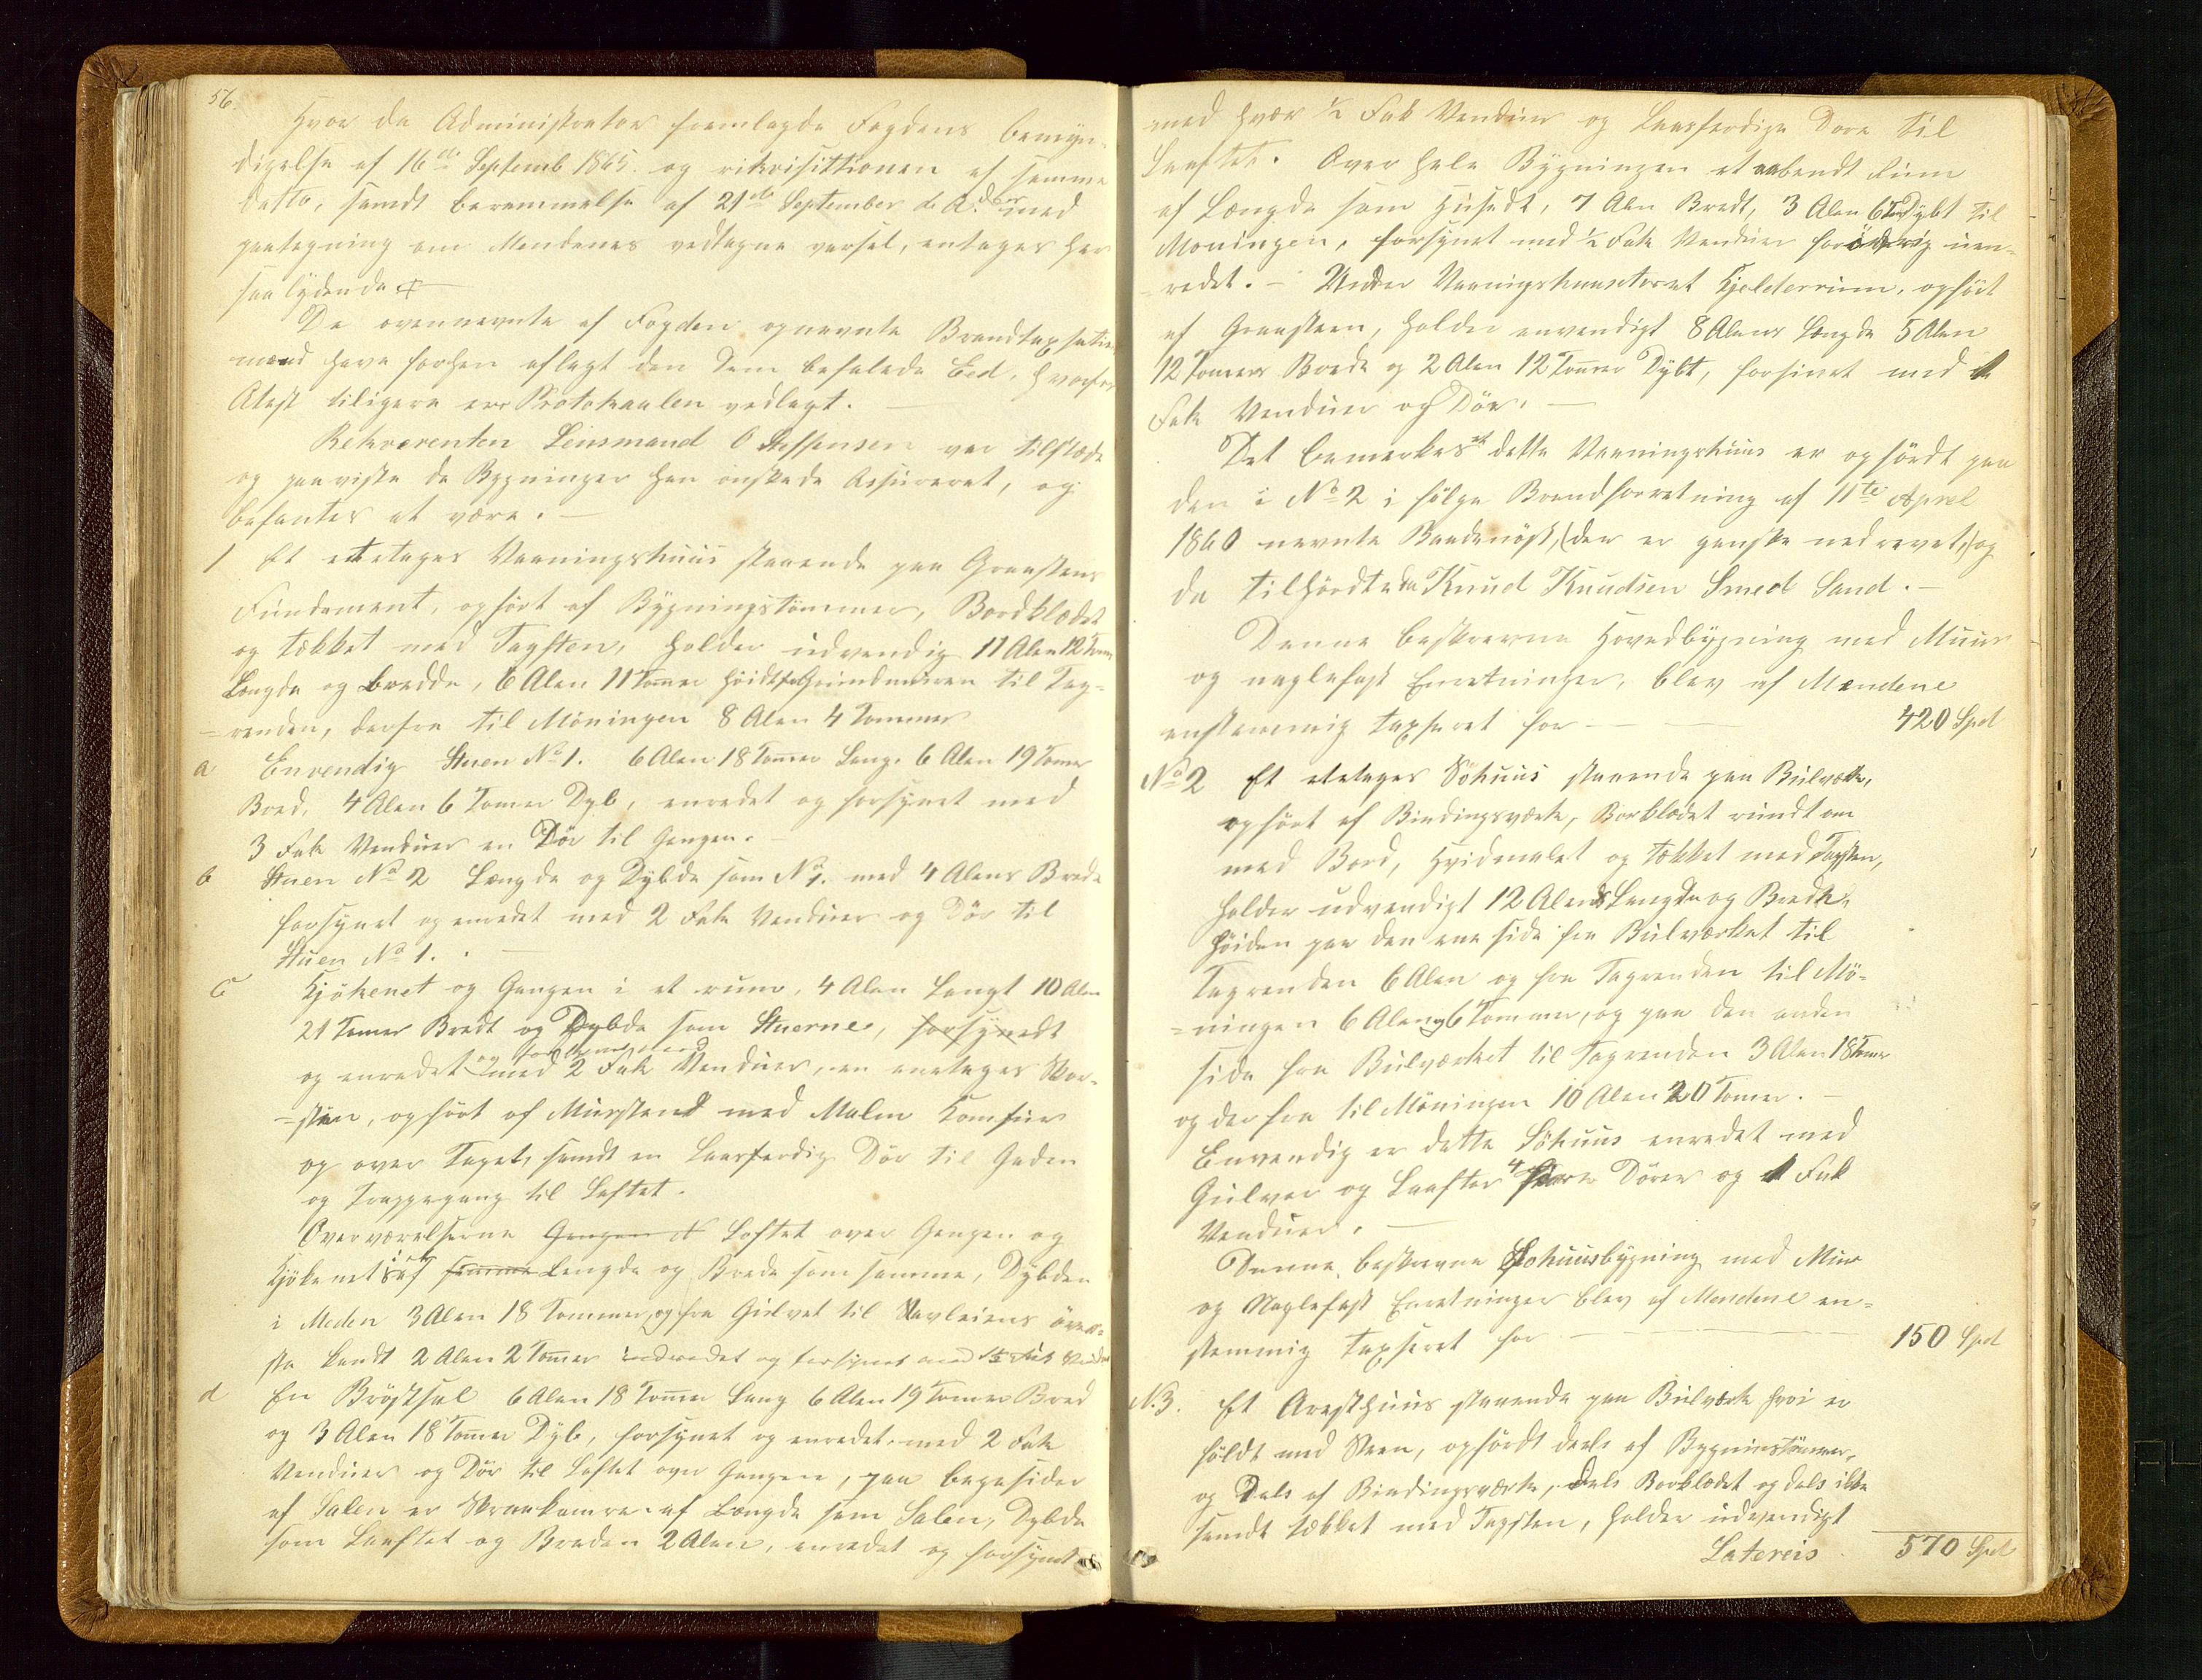 56.
Hvor da Administrator fremlagde Fogdens bemyn-
digelse af 16de Septemb 1865. og rikvisittionen af samme
datto, samdt berammelse af 21de September d. A. med
paategning om Mendenes vedtagne varsel, entages her
saa lydende
De ovennevnte af Fogden opnevnte Brandtaxsations
mænd have forhen aflagt den Dem befalede Eed, hvorfor
Atest tiligere er Protokaalen vedlagt. —
Rekvorenten Lensmand O Steffensen var tilstæde
og paaviste de Bygninger han önskede Assureret, og
befantes at være. —
1 Et etetages Vaaningshuus staaende paa Graastens
Fundament, opfört af Bygningstömmer, Bordklædet
og tækket med Tagsten, holder udvendig 11 Alen 12 Tom
Længde og Bredde, 6 Alen 11 Tommer höidt fra Grundmuren til Tag-
=renden, derfra til Möningen 8 Alen 4 Tommer
a Envendig Stuen No 1. 6 Alen 18 Tommer Lang. 6 Alen 19 Tomer
Bred, 4 Alen 6 Tomer Dyb, enredet og forsynet med
3 Fak Venduer en Dör til Gangen. —
b Stuen No 2 Længde og Dybde som No 1. med 4 Alens Brede
forsynet og enredet med 2 Fak Venduer og Dör til
Stuen No 1. —
c Kjökenet og Gangen i et rum, 4 Alen Langt 10 Alen
21 Tomer Bredt og Dybde som Stuerne, forsynedt
og enredet og forsynet med 2 Fak Venduer, en enetages Skor-
=sten, opfört af Mursten med Malm Komfur
og over Taget, samdt en Laasferdig Dör til Gaden
og Trappegang til Loftet.
Overværelserne Gangen Loftet over Gangen og
Kjökenet af samme Længde og Brede som samme, Dybden
i Meden 3 Alen 18 Tommer, og fra Gulvet til Stavleiens över-
ste kandt 2 Alen 2 Tomer indredet og forsynet med
d En Bröstsal 6 Alen 18 Tommer Lang 6 Alen 19 Tomer Bred
og 3 Alen 18 Tommer Dyb, forsynet og enredet med 2 Fak
Venduer og Dör til Loftet over Gangen, paa begesider
af Salen er Skraakamre af Længde som Salen, Dybde
som Laaftet og Breden 2 Alen, enredet og forsynet
med hver ½ Fak Venduer og Laasferdige Döre til
Laaftet. Over hele Bygningen et aabendt Rum
af Længde som Husedt, 7 Alen Bredt, 3 Alen 6 Tom Dybt til
Moningen, forsynet med ½ Fak Venduer forövrig uen-
=redet. — Under Vaaningshuusetervet Kjelderrum, opfört
af Graasteen, holder envendigt 8 Alens Længde 5 Alen
12 Tommers Brede og 2 Alen 12 Tommer Dybt, forsinet med 1
Fak Venduer og Dör. —
Det bemerkes at dette Vaaningshuus er opfördt paa
den i No 2 i fölge Brandforretning af 11te April
1860 nevnte Baadenöst, (der er ganske nedrevet,) og
da tilhördte Knud Knudsen Smed Sand. —
Denne beskrevne Hovedbygning med Muur
og naglefast Enretninger, blev af Mændene
enstemmig taxseret for — — 420 Spd
No 2 Et etetages Söhuus staaende paa Bulværk,
opfört af Bindingsværk, Borklædet rundt om
med Bord, Hvidmalet og tækket med Tagsten,
holder udvendigt 12 Alens Længde og Brede,
höiden paa den ene side fra Bulværket til
Tagrenden 6 Alen og fra Tagrenden til Mö-
=ningen 6 Alen og 6 Tommer, og paa den anden
side fra Bulværket til Tagrenden 3 Alen 18 Tomer
og derfra til Möningen 10 Alen 20 Tomer. —
Envendig er dette Söhuus enredet med
Gulver og Laafter 4 Dörer og 1 Fak
Venduer. —
Denne beskrevne Söhuusbygning med Mur
og Naglefast Enretninger blev af Mendene en-
stemmig taxseret for — — 150 Spd
N. 3. Et Aresthuus staaende paa Bulværk hvor er
földt med Steen, opfördt deels af Bygninstömmer,
og Dels af Bindingsværk, dels Borklædet og dels ikke
samdt tækket med Tagsten, holder udvendigt
Latereis 570 Spd